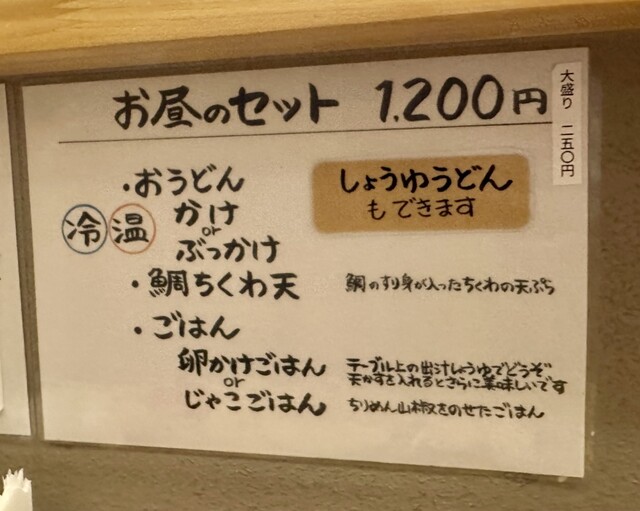 お昼のセット 1,200円
大盛り 二五〇円
・おうどん
冷 温 かけ
or
ぶっかけ
しょうゆうどん
もできます
・鯛ちくわ天 鯛のすり身が入ったちくわの天ぷら
・ごはん
卵かけごはん テーブル上の出汁しょうゆでどうぞ
天かすを入れるとさらに美味しいです
or
じゃこごはん ちりめん山椒をのせたごはん